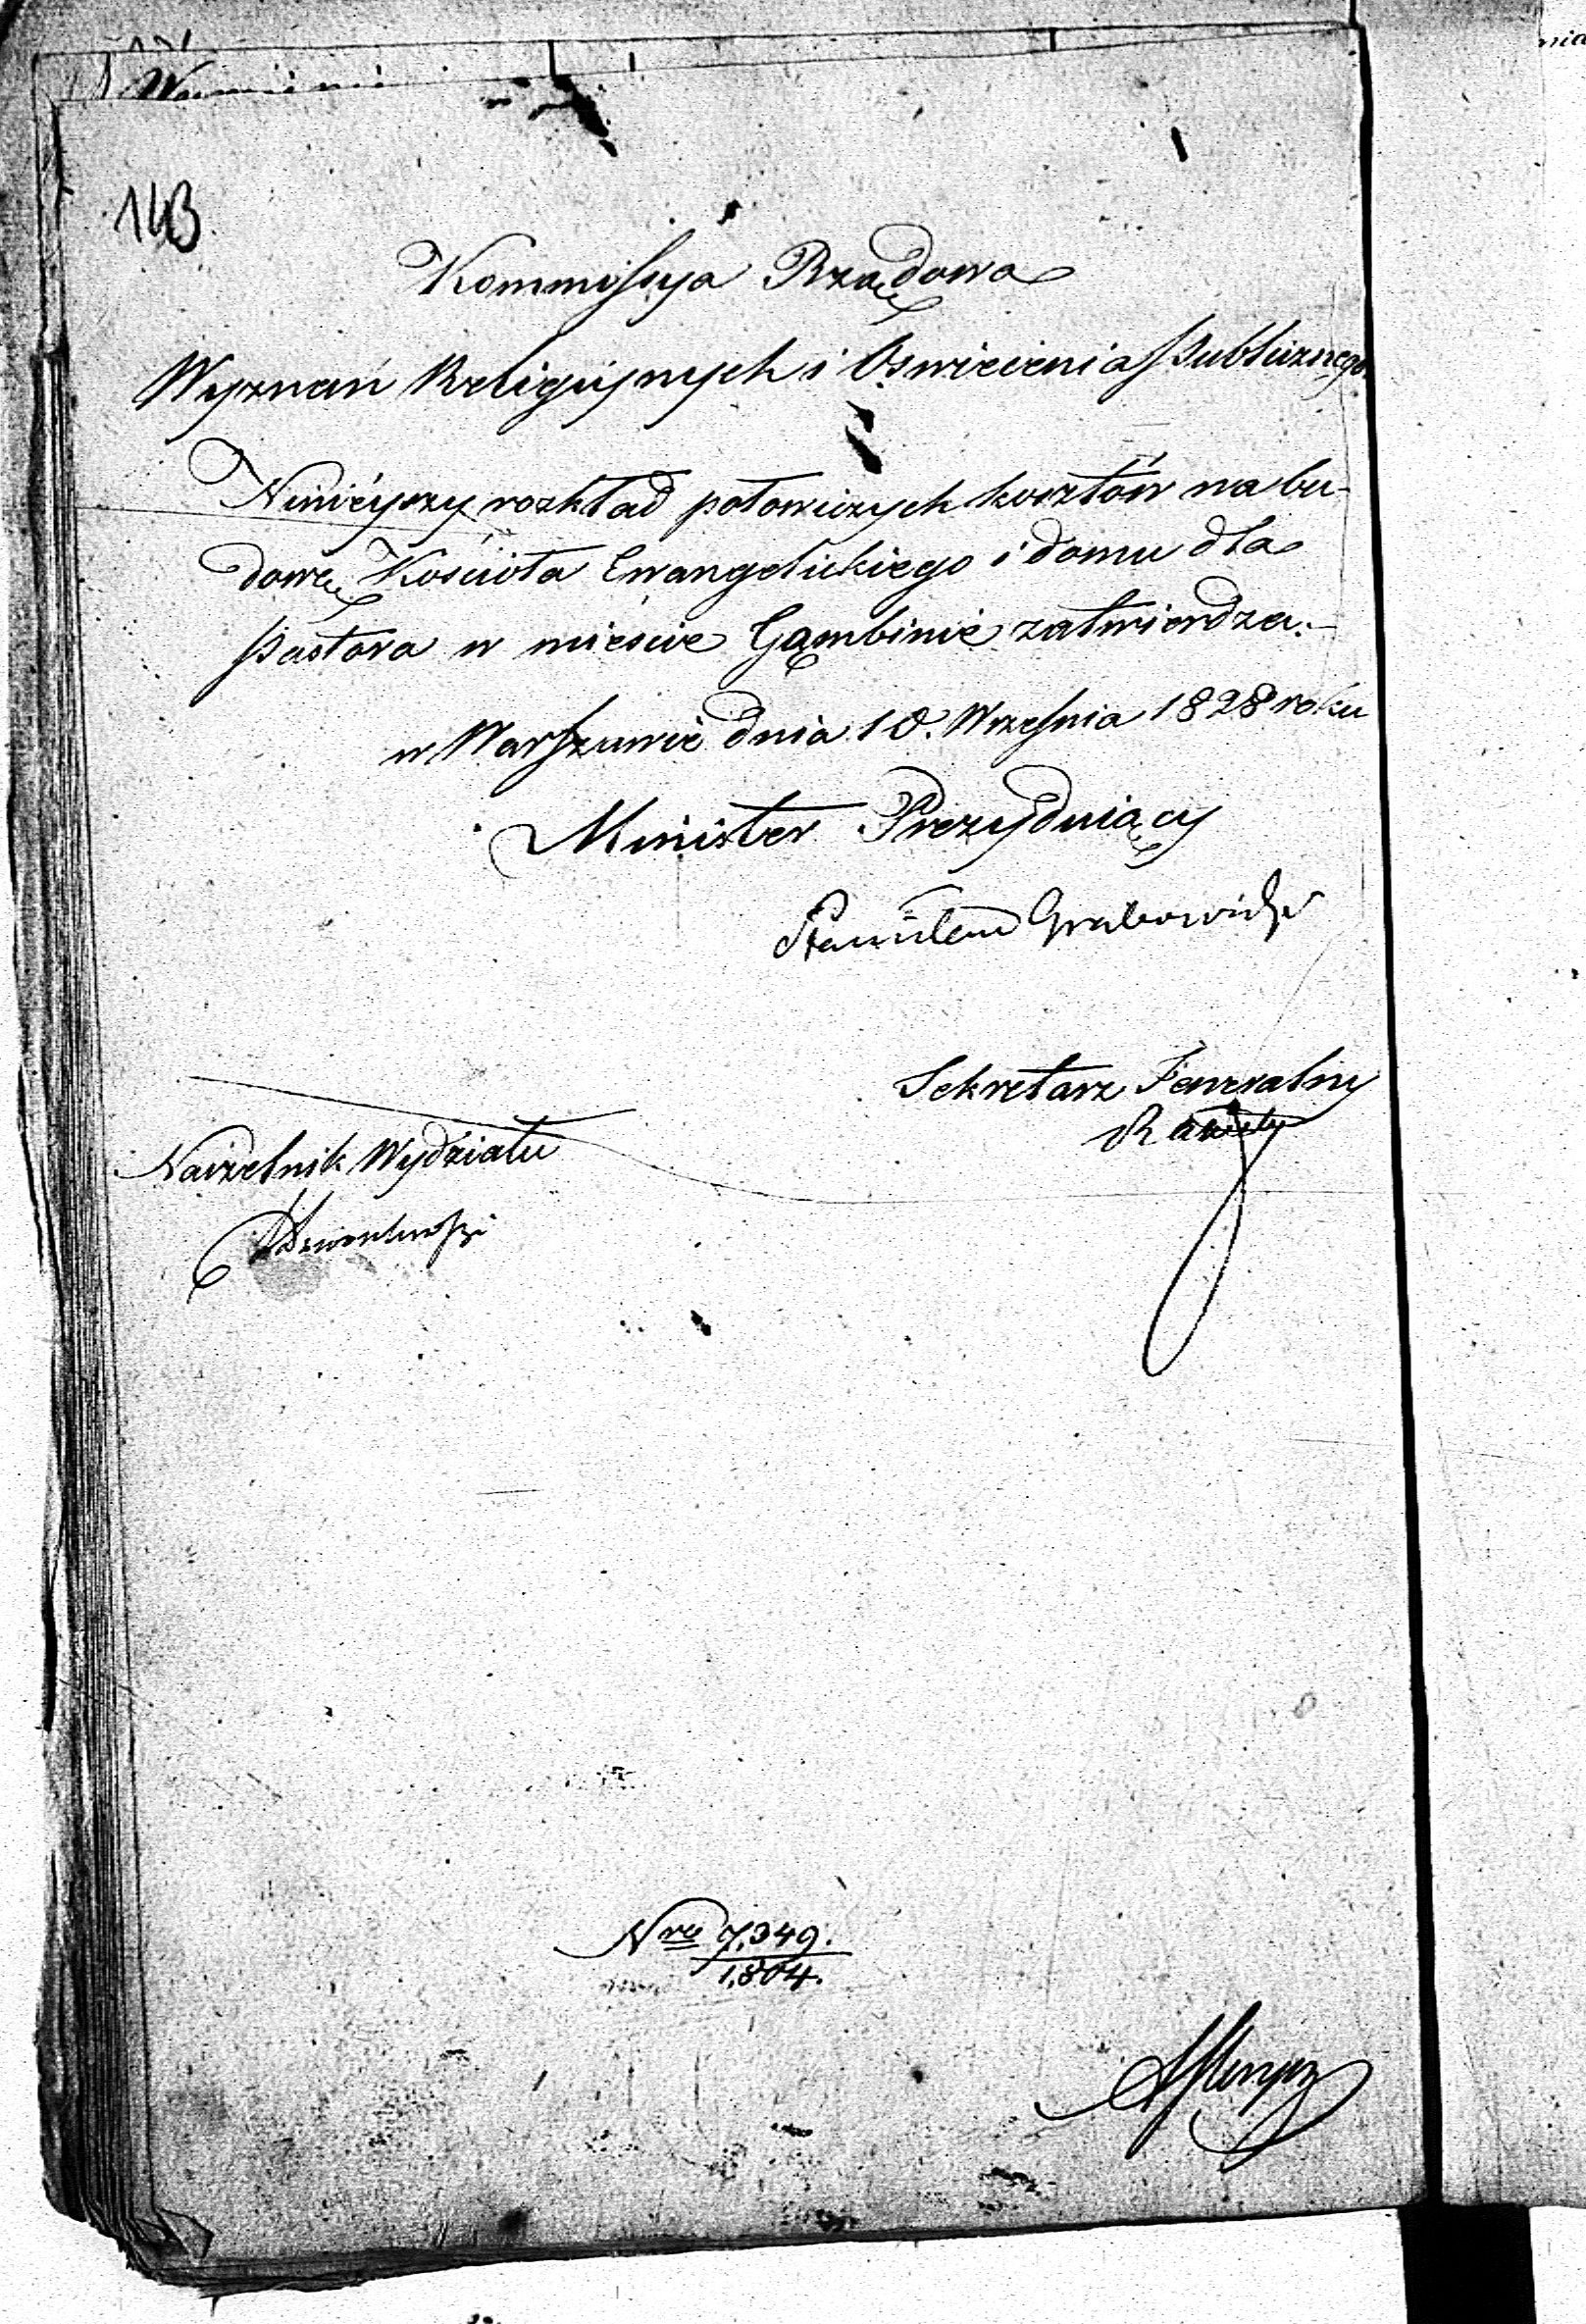 143
Kommissya Rządowa
Wyznań Religiynych i Oswiecenia Publicznego.
Ninieyszy rozkład połowiczych kosztów na bu-
dowę Kościoła Ewangelickiego i domu dla
Pastora w mieście Gąmbinie zatwierdza.-
w Warszawie dnia 10. Września 1828 roku
Minister Prezyduiący
Stanisław Grabowski
Sekretarz Jeneralny
Naczelnik Wydziału
Nro 7,349.
1,804.